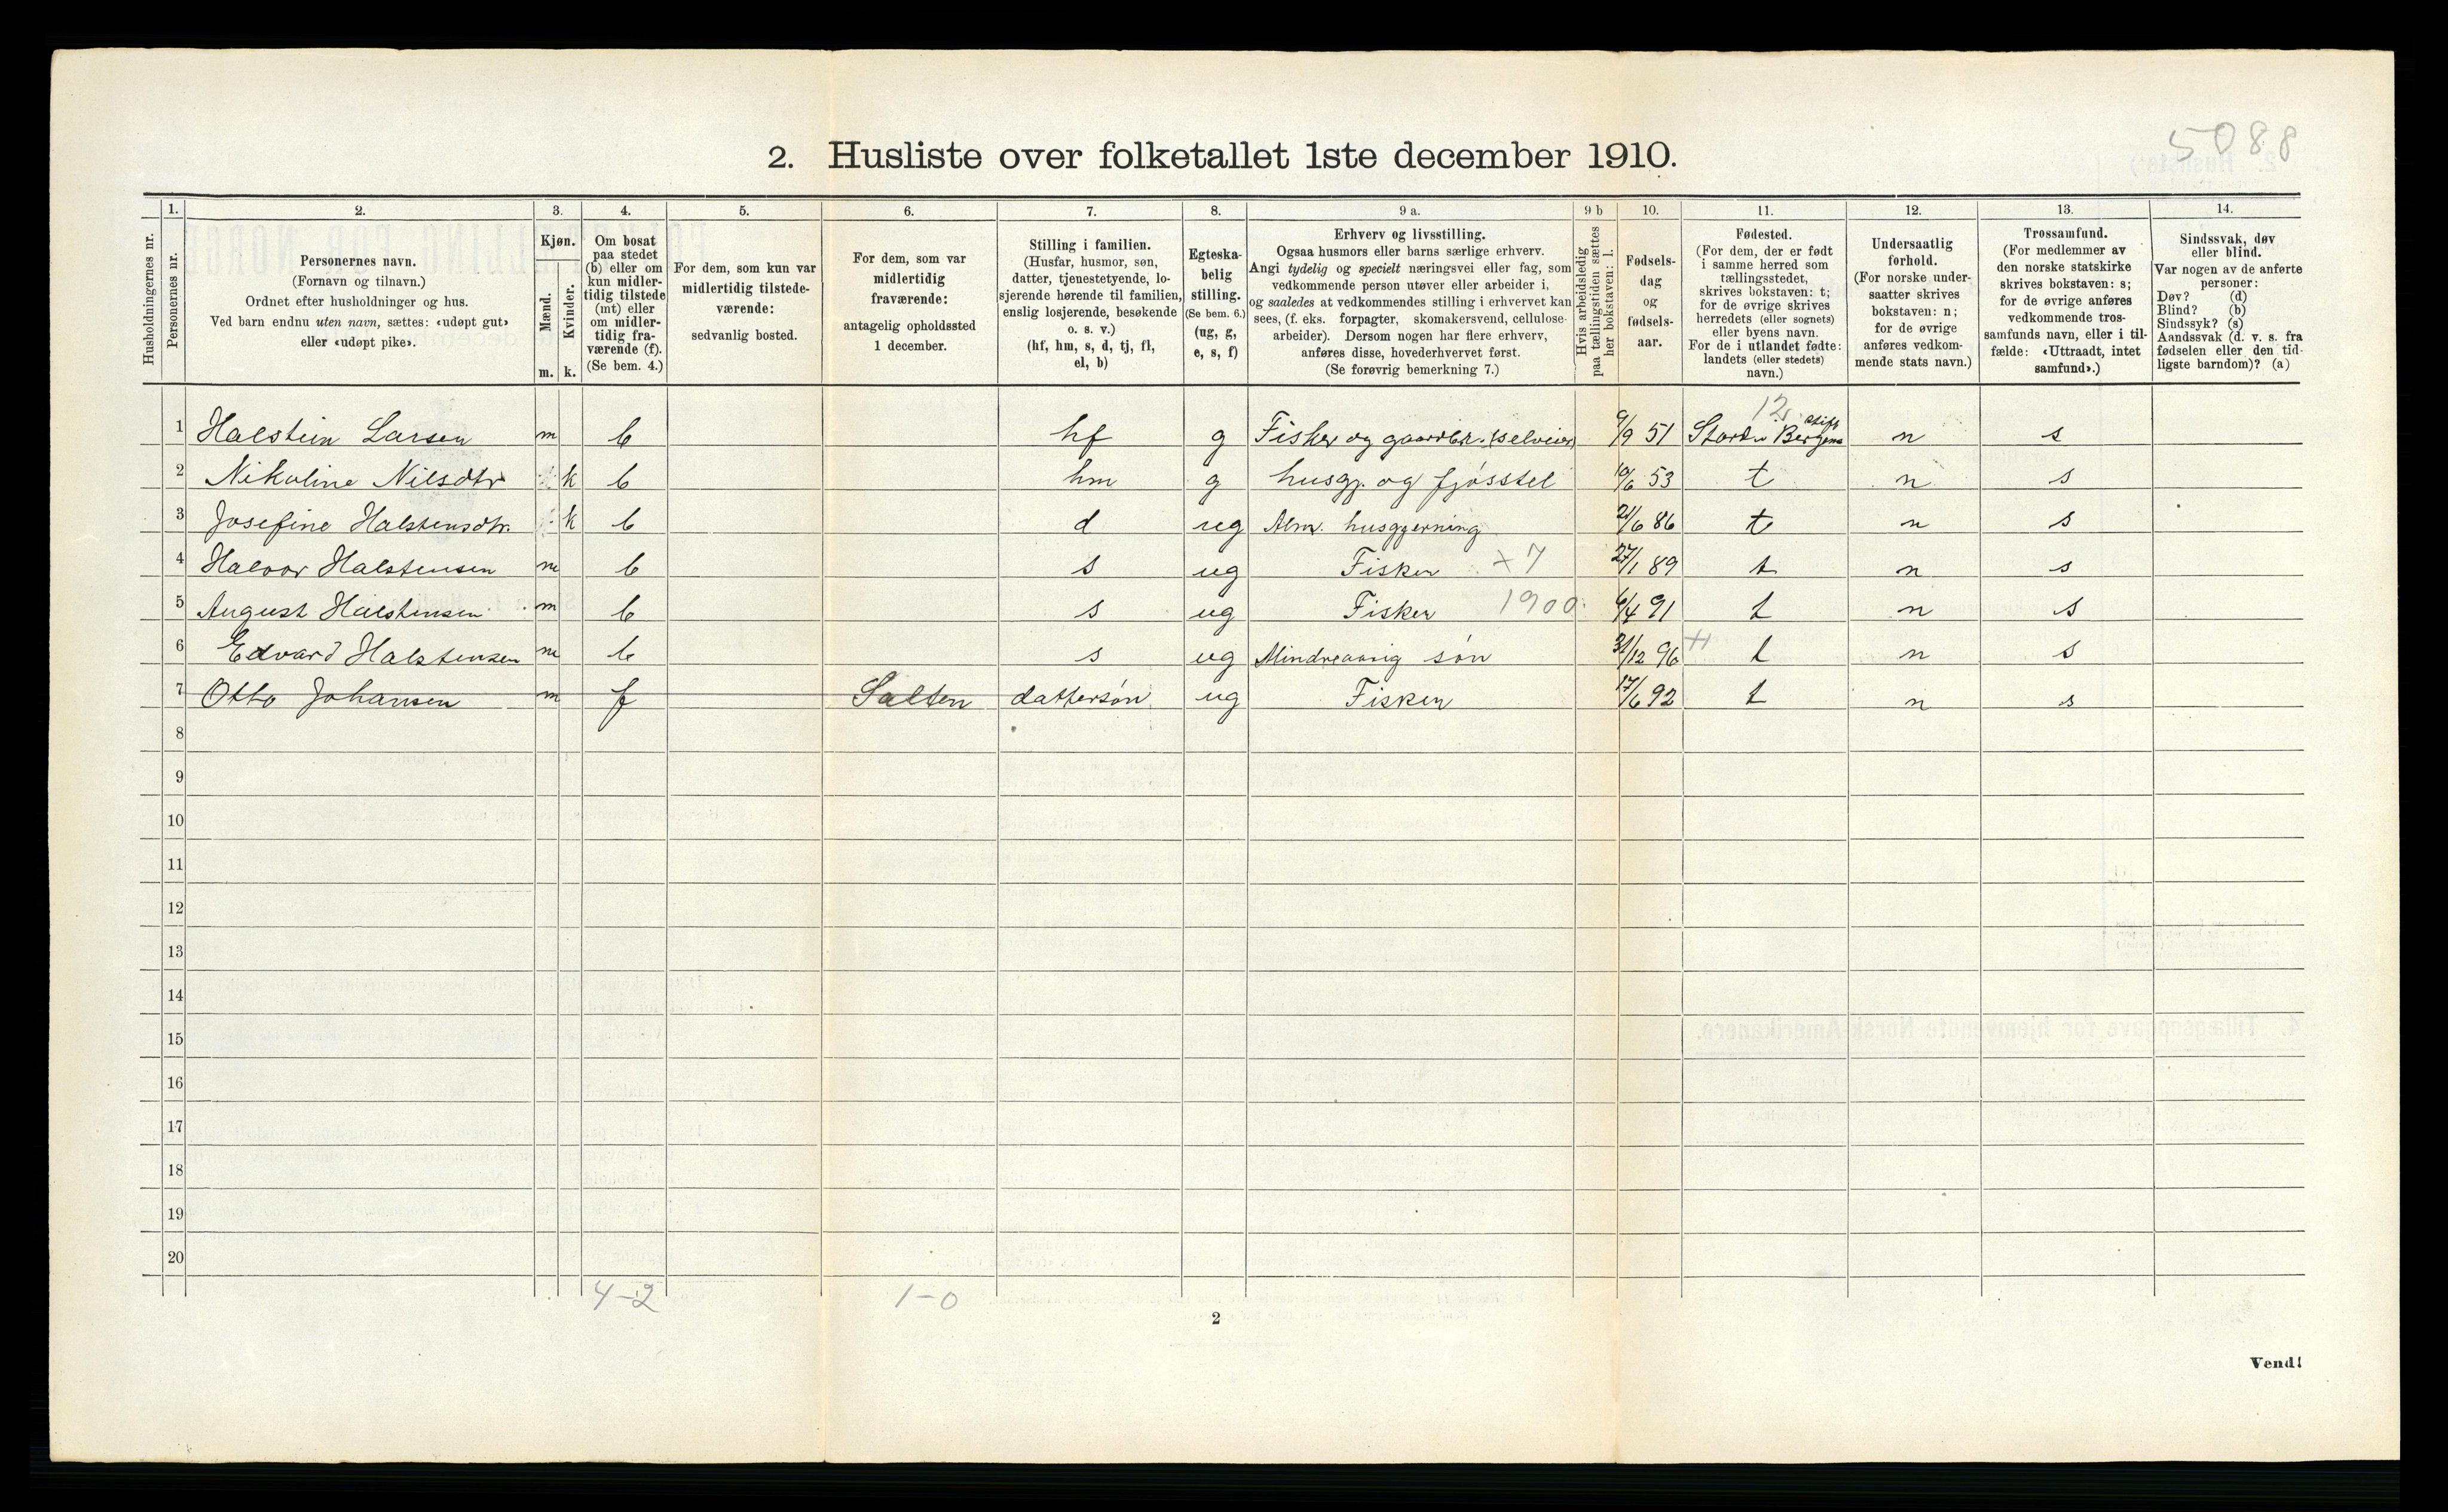 5088
2. Husliste over folketallet 1ste december 1910.
Husholdningernes nr.
1.
Personernes nr.
2.
Personernes navn.
(Fornavn og tilnavn.)
Ordnet efter husholdninger og hus.
Ved barn endnu uten navn, sættes: «udøpt gut»
eller «udøpt pike».
3.
Kjøn.
Mænd.
Kvinder.
m. k.
4.
Om bosat
paa stedet
(b) eller om
kun midler-
tidig tilstede
(mt) eller
om midler-
tidig fra-
værende (f).
(Se bem. 4.)
5.
For dem, som kun var
midlertidig tilstede-
værende:
sedvanlig bosted.
6.
For dem, som var
midlertidig
fraværende:
antagelig opholdssted
1 december.
7.
Stilling i familien.
(Husfar, husmor, søn,
datter, tjenestetyende, lo-
sjerende hørende til familien,
enslig losjerende, besøkende
o. s. v.)
(hf, hm, s, d, tj, fl,
el, b)
8.
Egteska-
belig
stilling.
(Se bem. 6.)
(ug, g,
e, s, f)
9 a.
Erhverv og livsstilling.
Ogsaa husmors eller barns særlige erhverv.
Angi tydelig og specielt næringsvei eller fag, som
vedkommende person utøver eller arbeider i,
og saaledes at vedkommendes stilling i erhvervet kan
sees, (f. eks. forpagter, skomakersvend, cellulose-
arbeider). Dersom nogen har flere erhverv,
anføres disse, hovederhvervet først.
(Se forøvrig bemerkning 7.)
9 b
Hvis arbeidsledig
paa tællingstiden sættes
her bokstaven: l.
10.
Fødsels-
dag
og
fødsels-
aar.
11.
Fødested.
(For dem, der er født
i samme herred som
tællingsstedet,
skrives bokstaven: t;
for de øvrige skrives
herredets (eller sognets)
eller byens navn.
For de i utlandet fødte:
landets (eller stedets)
navn.)
12.
Undersaatlig
forhold.
(For norske under-
saatter skrives
bokstaven: n;
for de øvrige
anføres vedkom-
mende stats navn.)
13.
Trossamfund.
(For medlemmer av
den norske statskirke
skrives bokstaven: s;
for de øvrige anføres
vedkommende tros-
samfunds navn, eller i til-
fælde: «Uttraadt, intet
samfund».)
14.
Sindssvak, døv
eller blind.
Var nogen av de anførte
personer:
Døv? (d)
Blind? (b)
Sindssyk? (s)
Aandssvak (d. v. s. fra
fødselen eller den tid-
ligste barndom)? (a)
12
1 Halstein Larsen m b hf g Fisker og gaardbr. (selveier) 9/9 51 Stord. Bergens stift n s
2 Nikoline Nilsdtr k b hm g husgj. og fjósstel 10/6 53 t n s
3 Josefine Halstensdtr. k b d ug Alm. husgjerning 21/6 86 t n s
4 Halvor Halstensen m b s ug Fisker +7 27/1 89 t n s
5 August Halstensen m b s ug Fisker 1900 6/4 91 t n s
6 Edvard Halstensen m b s ug Mindreaarig søn 31/12 96 t n s
7 Otto Johansen m f Salten dattersón ug Fisker 17/6 92 t n s
8
9
10
11
12
13
14
15
16
17
18
19
20
4-2 1-0
2
Vend!